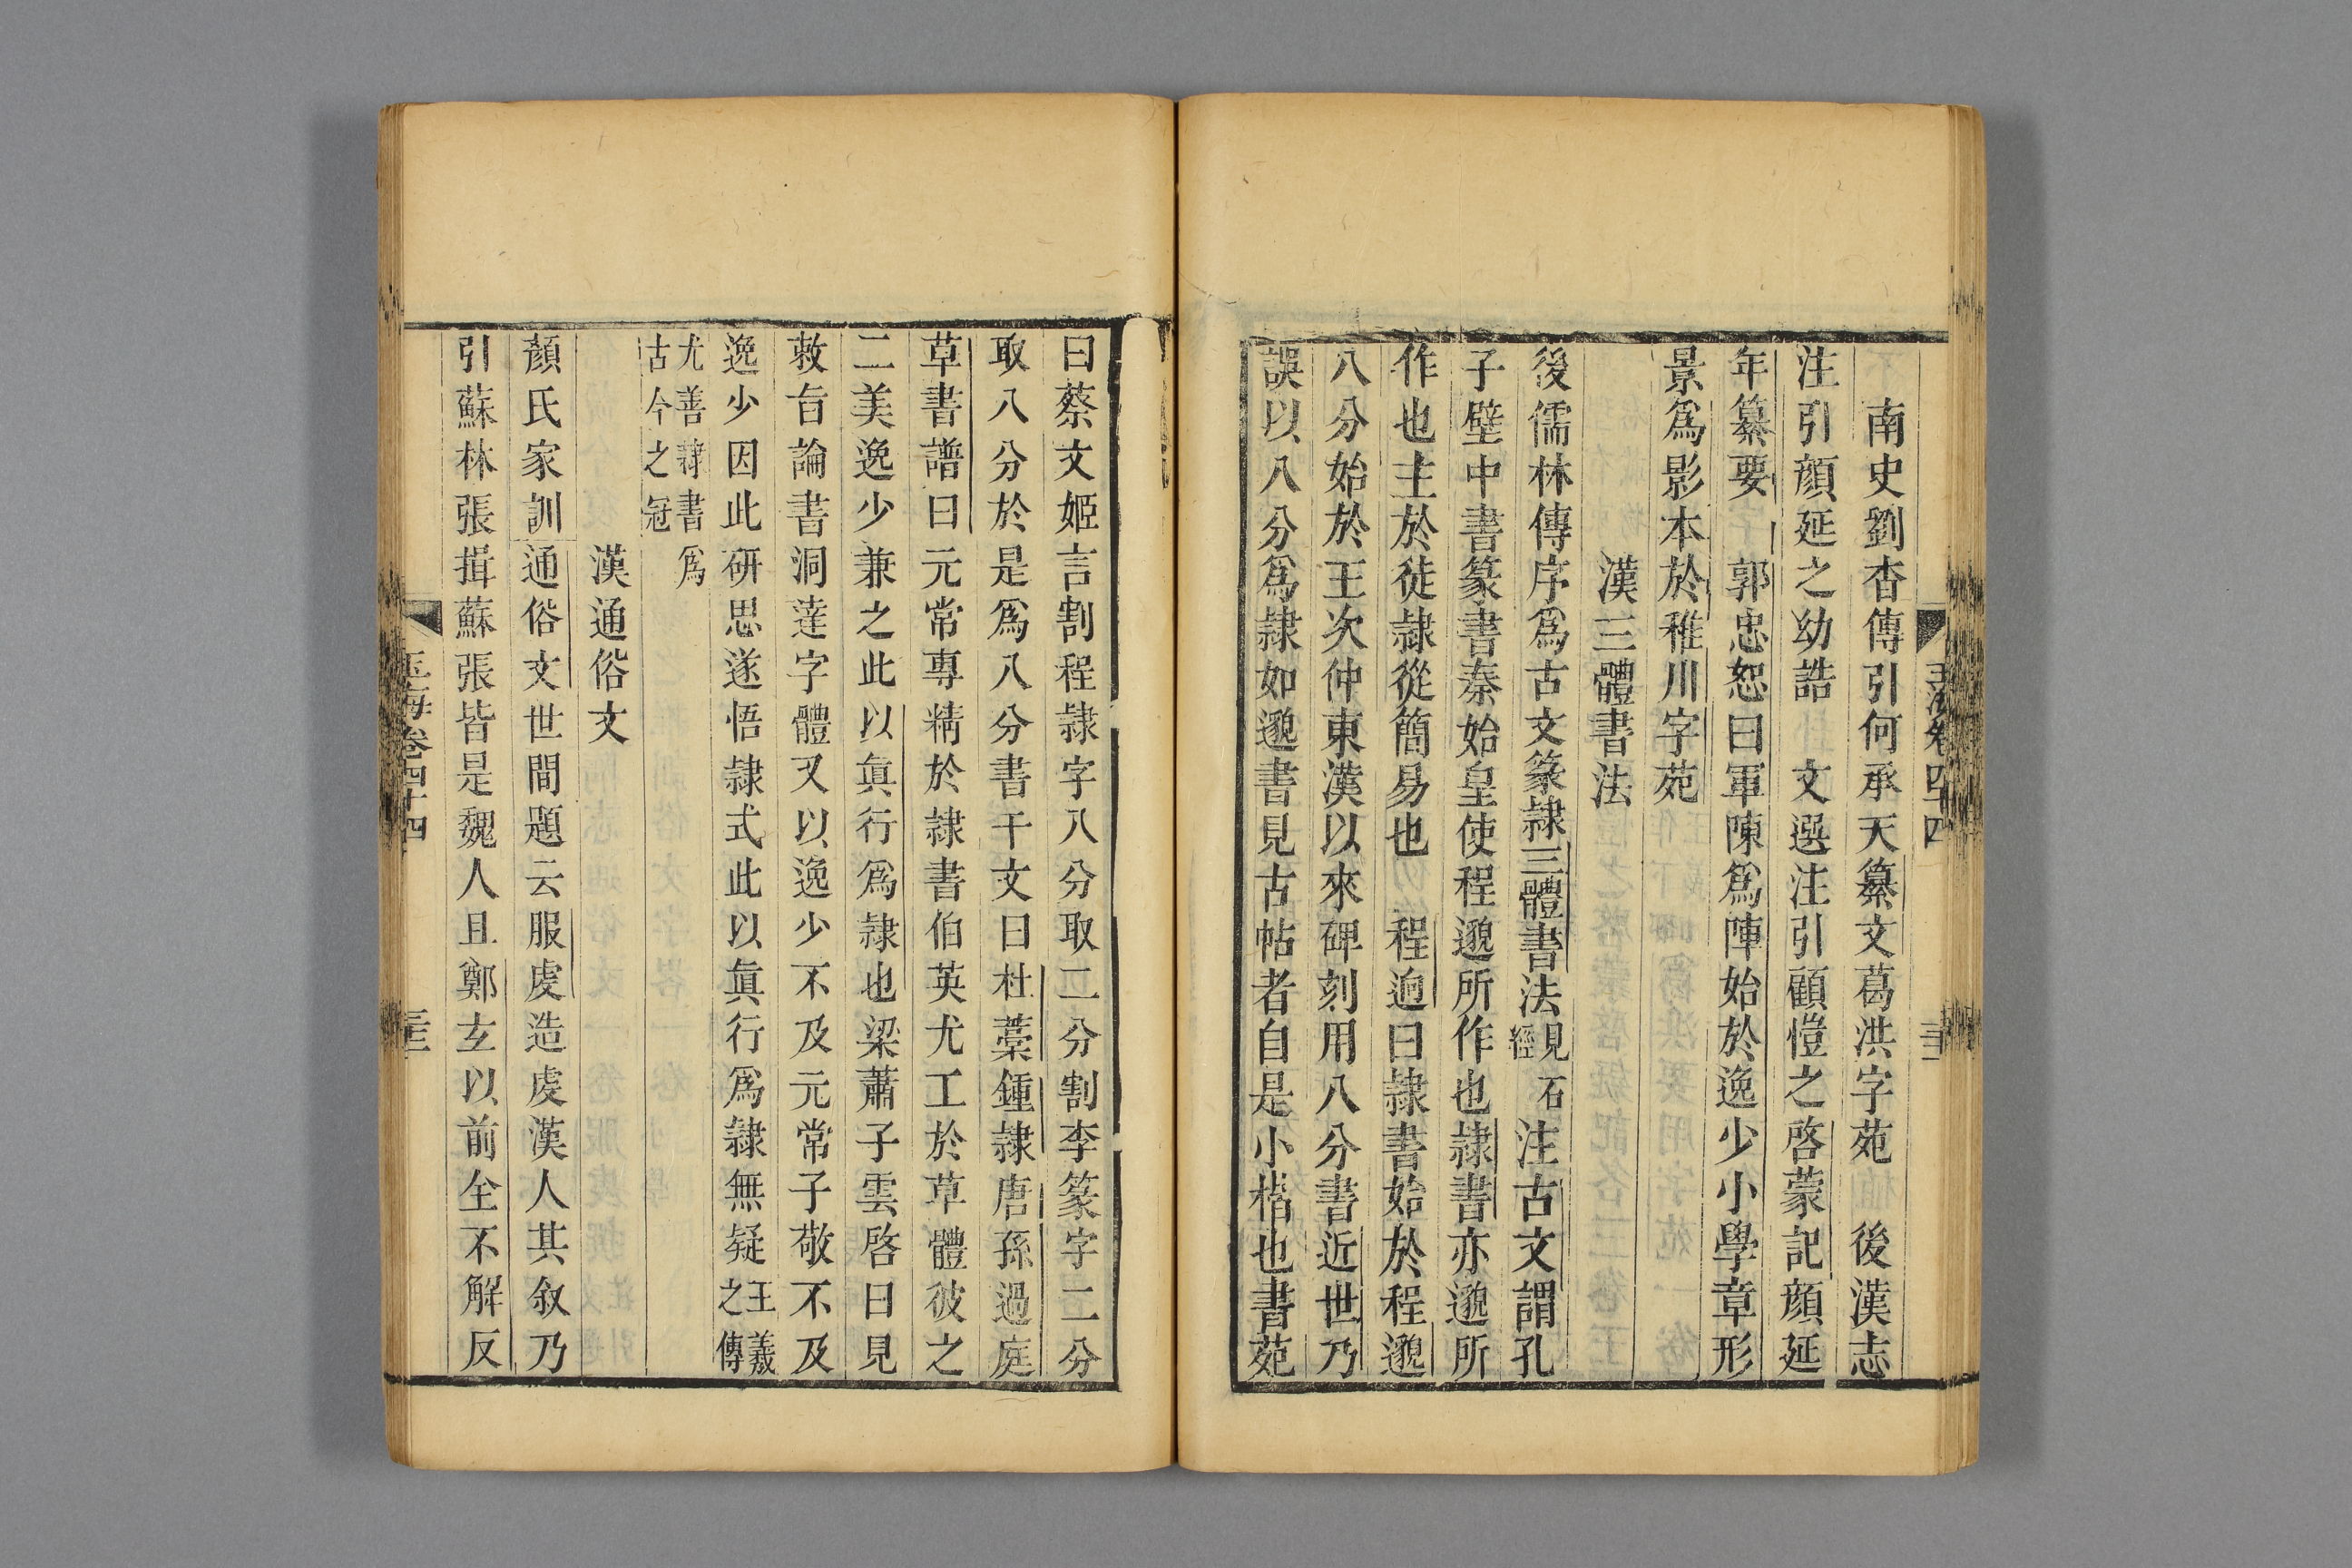 南史劉杳傳引何承天纂文葛洪字苑 後漢志
注引顔延之幼誥 文選注引顧愷之啓蒙記顔延
年纂要 郭忠恕曰軍陳爲陣始於逸少小學章形
景爲影本於稚川字苑
漢三體書法
後儒林傳序爲古文篆隷三體書法見石經注古文謂孔
子壁中書篆書秦始皇使程邈所作也隷書亦邈所
作也主於徒隷從簡易也 程逈曰隷書始於程邈
八分始於王次仲東漢以來碑刻用八分書近世乃
誤以八分爲隷如邈書見古帖者自是小楷也書苑
曰蔡文姬言割程隷字八分取二分割李篆字二分
取八分於是爲八分書千文曰杜藁鍾隷唐孫過庭
草書譜曰元常專精於隷書伯英尤工於草體彼之
二美逸少兼之此以眞行爲隷也梁蕭子雲啓曰見
敕旨論書洞達字體又以逸少不及元常子敬不及
逸少因此研思遂悟隷式此以眞行爲隷無疑王羲之傳
尤善隷書爲古今之冠
漢通俗文
顏氏家訓通俗文世間題云服虔造虔漢人其叙乃
引蘇林張揖蘇張皆是魏人且鄭玄以前全不解反
玉海卷四十四